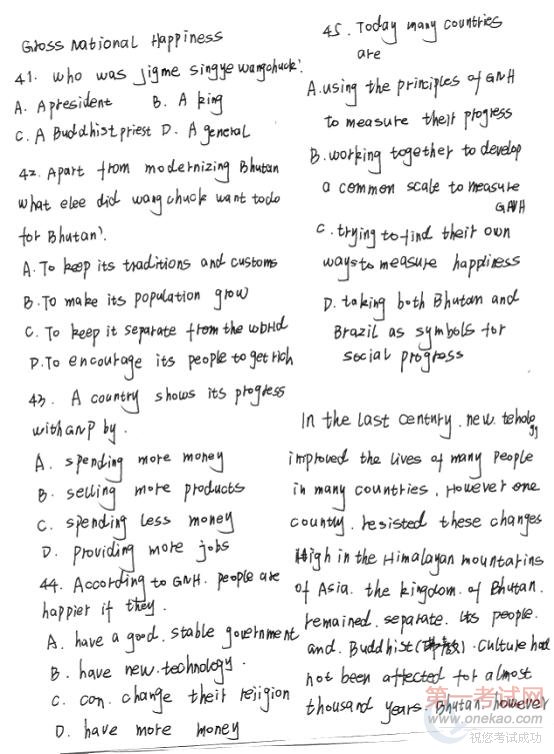 Gross National Happiness
41. who was jigme singye wangchuck?
A. A president B. A king
C. A Buddhist priest D. A general
42. Apart from modernizing Bhutan
what elee did wangchuck want todo
for Bhutan?
A. To keep its traditions and customs
B. To make its population grow
C. To keep it separate from the world
D. To encourage its people to get rich
43. A country shows its progress
with GNP by.
A. spending more money
B. selling more products
C. spending less money
D. providing more jobs
44. According to GNH. people are
happier if they.
A. have a good. stable government
B. have new. technology.
C. can. change their rejigion
D. have more money
45. Today many countries
are
A. using the principles of GNH
to measure their progress
B. working together to develop
a common scale to measure
GNH
C. trying to find their own
ways to measure happliness
D. taking both Bhutan and
Brazil as symbols for
social progress
In the last century. new. teholog
gy
improved the lives of many people
in many countries. However one
country. resisted these changes
High in the Himalayan mountarins
of Asia. the kingdom. of Bhutan.
remained. separate. Its people.
and. Buddhist (佛教). Culture had
not been affected for almost
thousand years. Bhutan, however
第一考试网
www.onekao.com
祝您考试成功